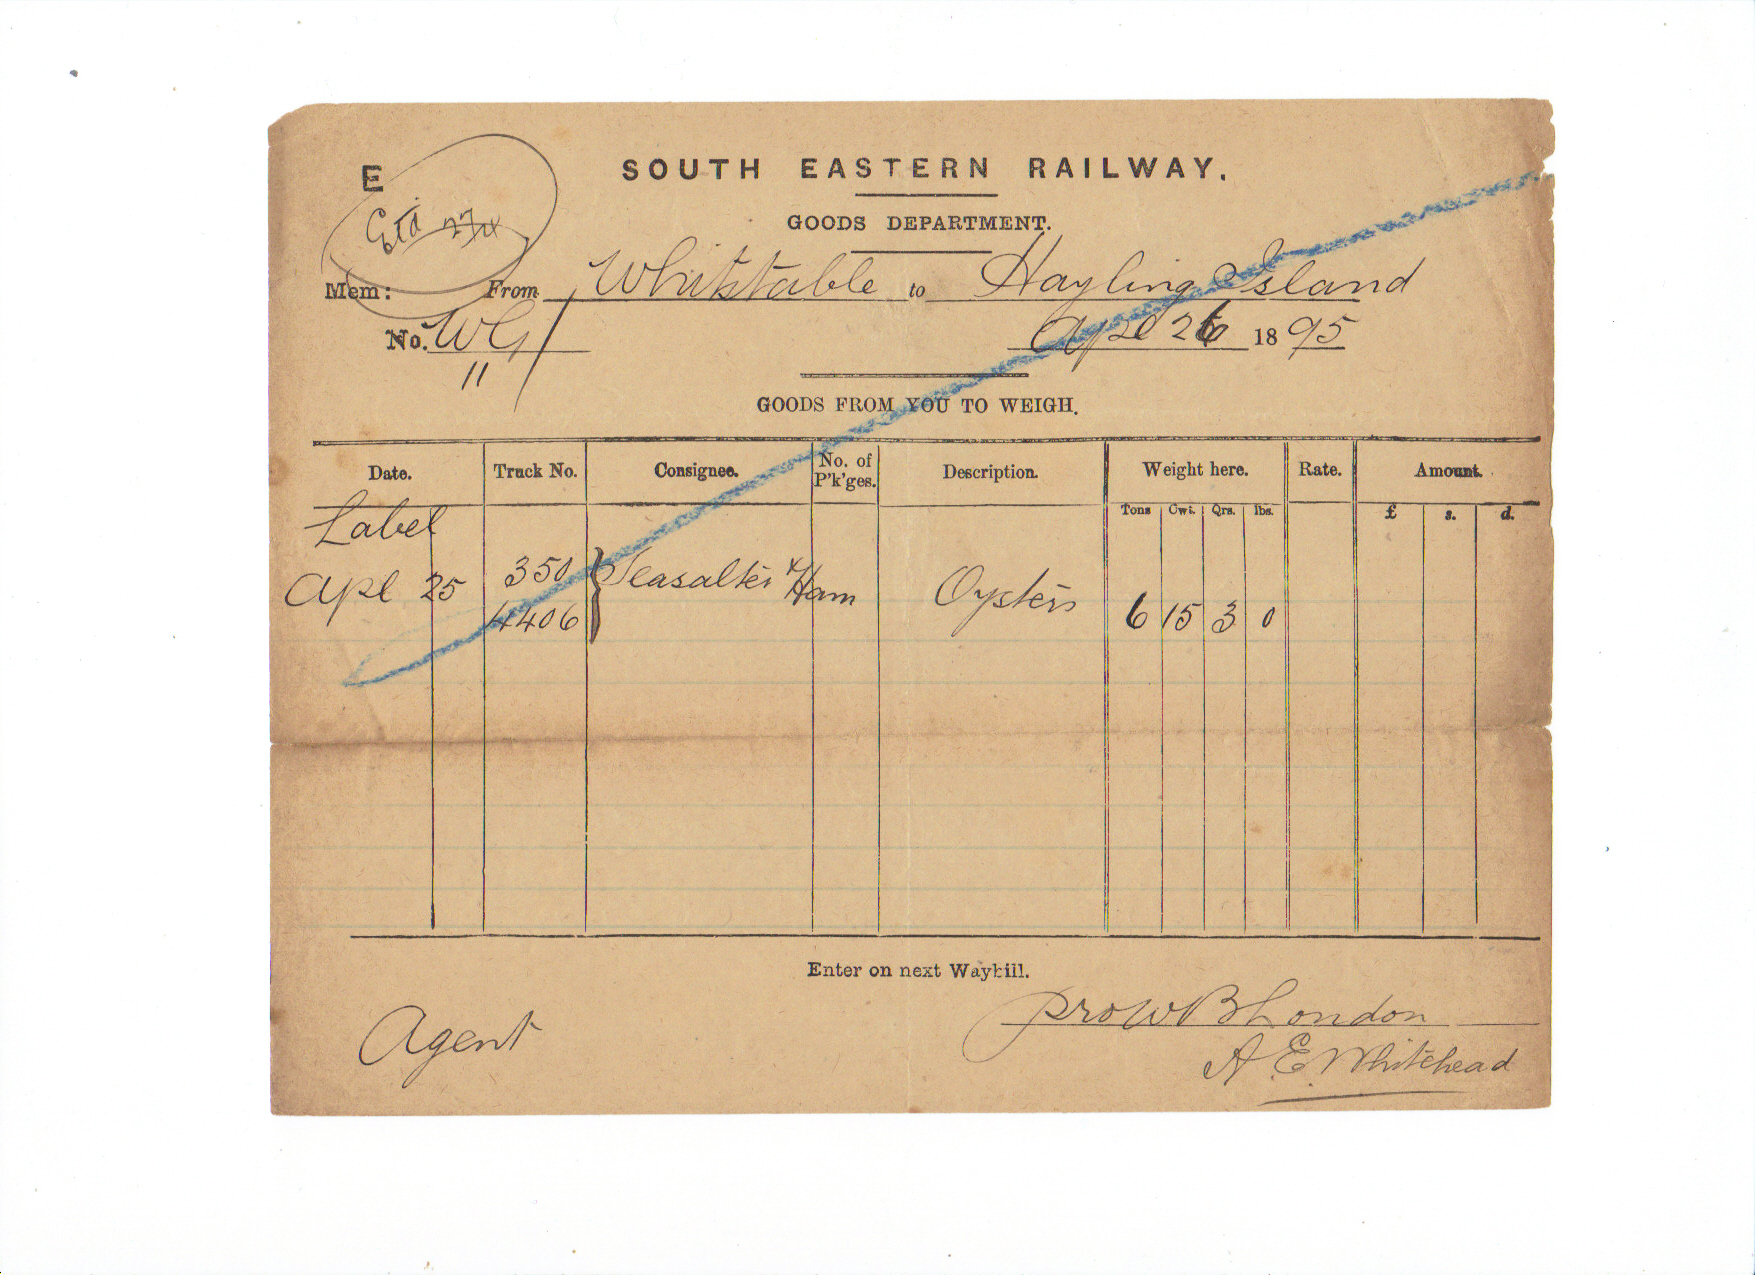 E
SOUTH EASTERN RAILWAY.
GOODS DEPARTMENT.
Etd 27/4
Mem: From Whitstable to Hayling Island
No. WG/11
Apl 26 1895
GOODS FROM YOU TO WEIGH.
Date. Truck No. Consignee. No. of P'k'ges. Description. Weight here. Rate. Amount.
Tons Cwt. Qrs. lbs. £ s. d.
Label
Apl 25 350 Seasalter & Ham Oysters 6 15 3 0
4406
Enter on next Waybill.
Agent
pro W B London
A. E. Whitehead